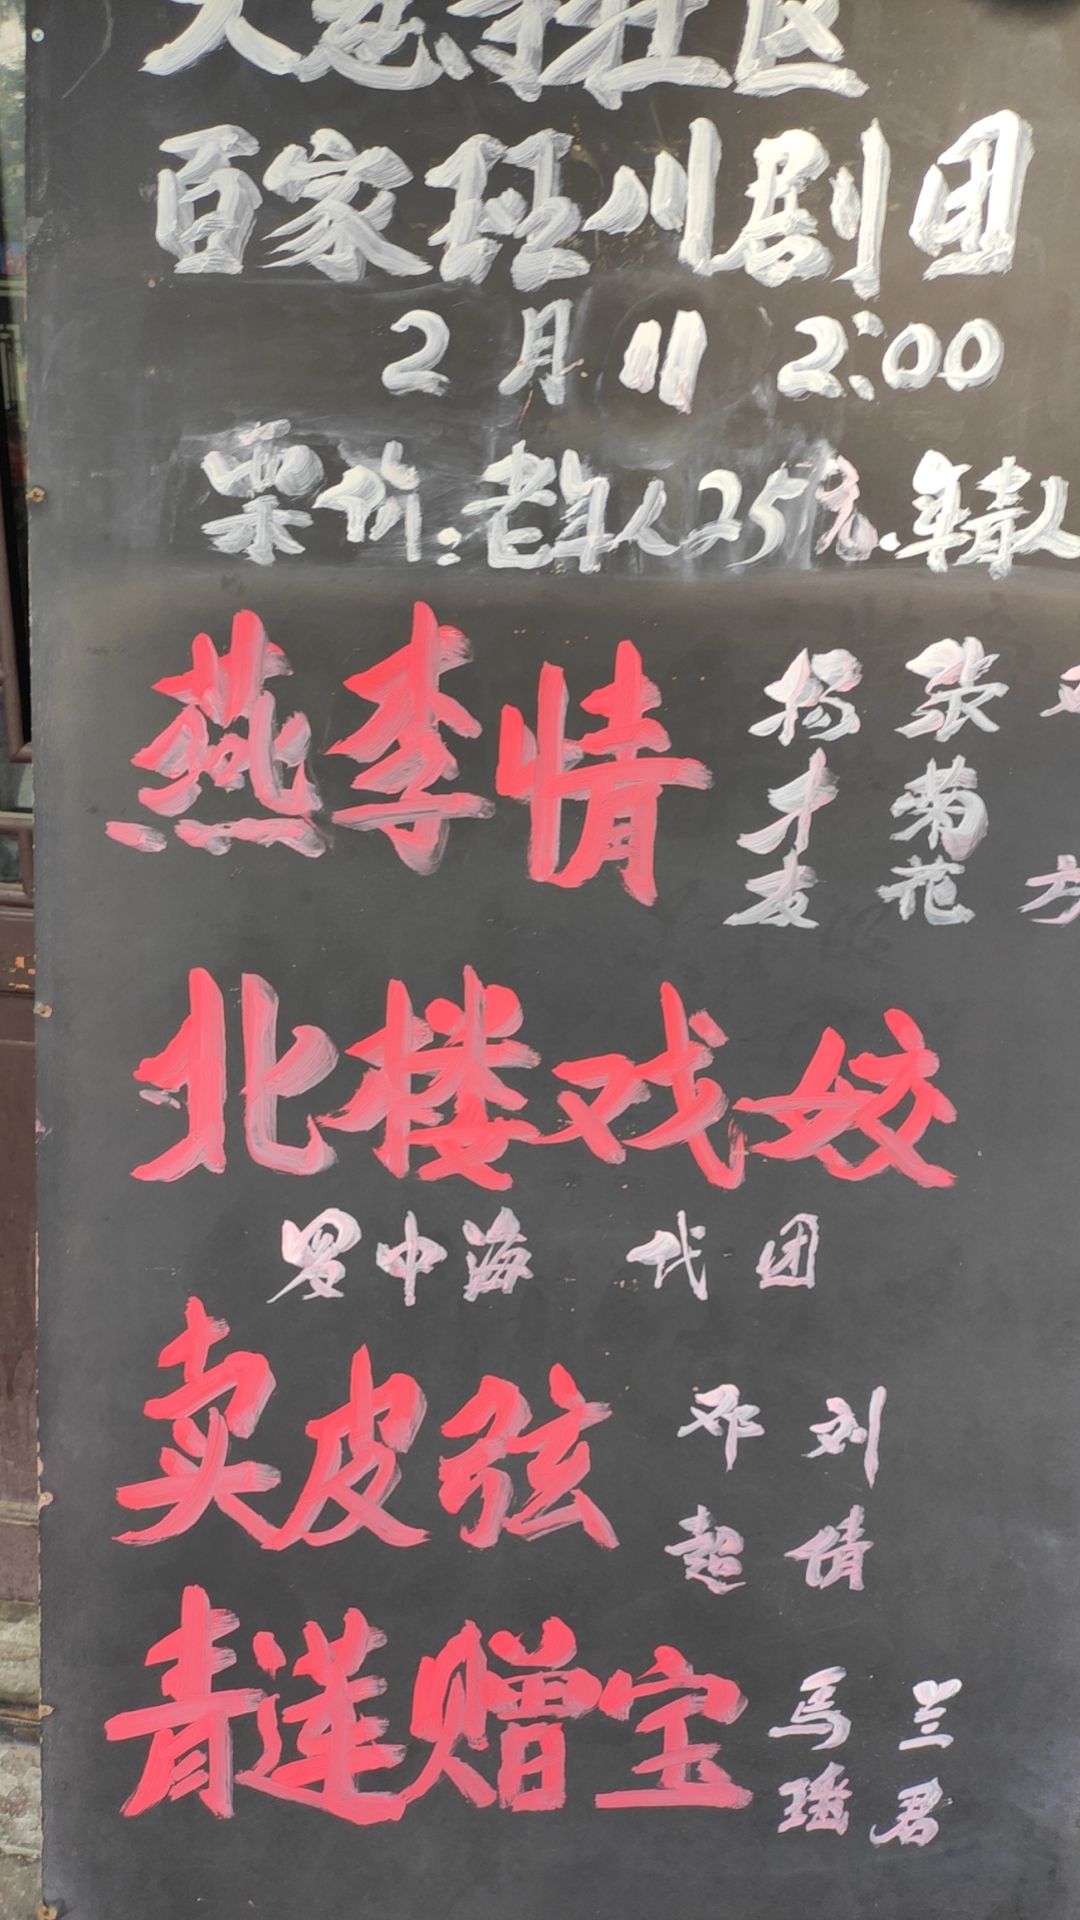 大慈寺社区
百家班川剧团
2月11 2:00
票价:老年人25元.年青人
燕李情 杨才友 张菊花
北楼戏姣
罗中海 代团
卖皮弦 邓超 刘倩
青莲赠宝 马璠 兰君